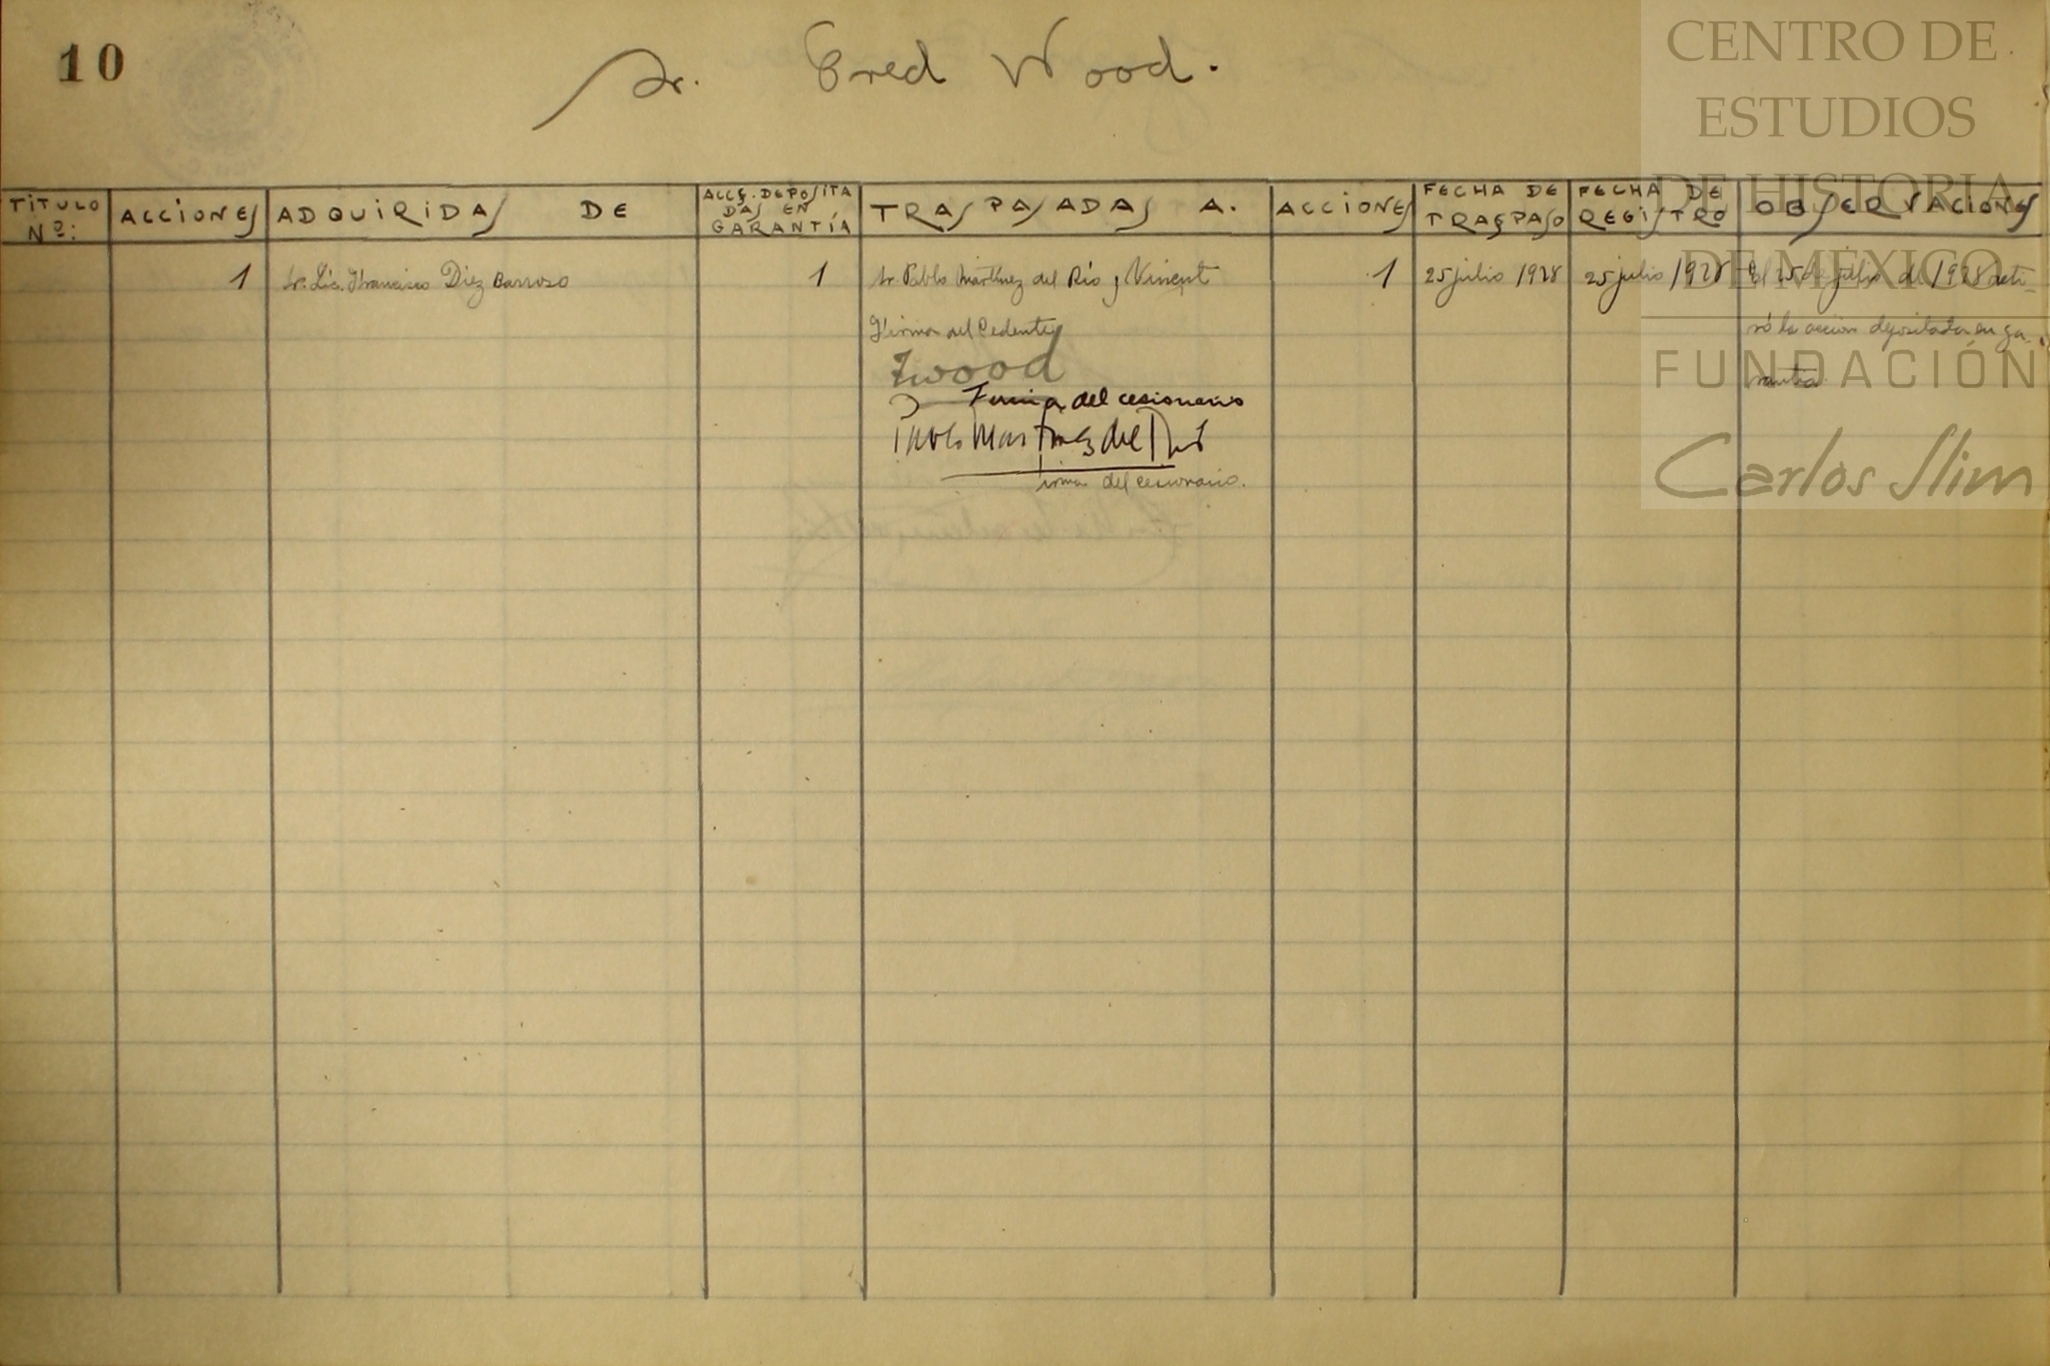 10
Sr. Fred Wood.
TITULO Nº:
ACCIONES
ADQUIRIDAS DE
ACCS. DEPOSITA
DAS EN
GARANTÍA
TRASPASADAS A.
ACCIONES
FECHA DE
TRASPASO
FECHA DE
REGISTRO
OBSERVACIONES
1 Sr. Lic. Francisco Diez Barroso 1 Sr. Pablo Martínez del Río y Vinent 1 25 julio 1928 25 julio 1928 El 25 de julio de 1928 reti-
Firma del Cedente
ró la accion depositada en ga-
FWood
rantía.
Firma del cesionario
Pablo Martinez del Río
Firma del cesionario.
CENTRO DE
ESTUDIOS
DE HISTORIA
DE MÉXICO
FUNDACIÓN
Carlos Slim